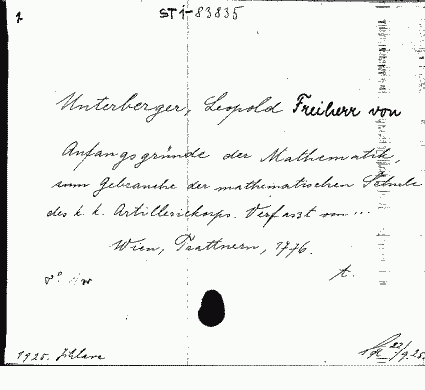 1
ST1-83835
Unterberger, Leopold Freiherr von
Anfangsgründe der Mathematik,
zum Gebrauche der mathematischen Schule
des k. k. Artilleriekorps. Verfasst von ...
Wien, Trattnern, 1776.
t.
1925.
22/9.25.